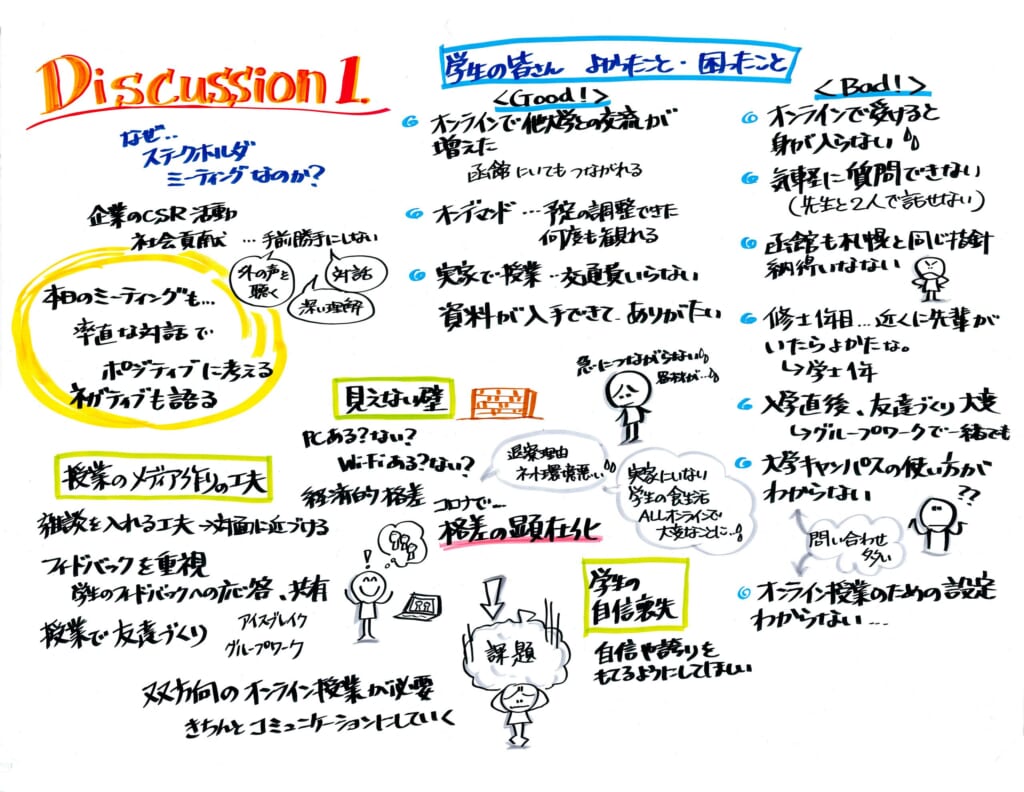 Discussion 1.
なぜ‥
ステークホルダ
ミーティングなのか?
企業のCSR活動
社会貢献 …手前勝手にしない
外の声を
聴く
対話
深い理解
本日のミーティングも…
率直な対話で
ポジティブに考える
ネガティブも語る
学生の皆さん よかったこと・困ったこと
<Good!>
オンラインで他大学との交流が
増えた
函館にいてもつながれる
オンデマンド…予定の調整できた
何度も観れる
実家で授業‥交通費いらない
資料が入手できて‥ありがたい
<Bad!>
オンラインで受けると
身が入らない
気軽に質問できない
(先生と2人で話せない)
函館も札幌と同じ指針
納得いなない
修士1年目…近くに先輩が
いたらよかたな。
↳学士1年
入学直後、友達づくり大変
↳グループワークで一緒でも
大学キャンパスの使い方が
わからない
??
問い合わせ
多い
オンライン授業のための設定
わからない…
見えない壁
PCある?ない?
Wi-Fiある?ない?
経済的格差
急につながらない
退察理由
ネット環境悪い
コロナで…
格差の顕在化
実家にいない
学生の食生活
ALLオンラインで
大変なことに…
授業のメディア作りの工夫
雑談を入れる工夫→対面に近づける
フィードバックを重視
学生のフィードバックへの応答、共有
授業で友達づくり
アイスブレイク
グループワーク
!
双方向のオンライン授業が必要
きちんとコミュニケーションにしていく
課題
学生の
自信喪失
自信や誇りを
もてるようにしてほしい